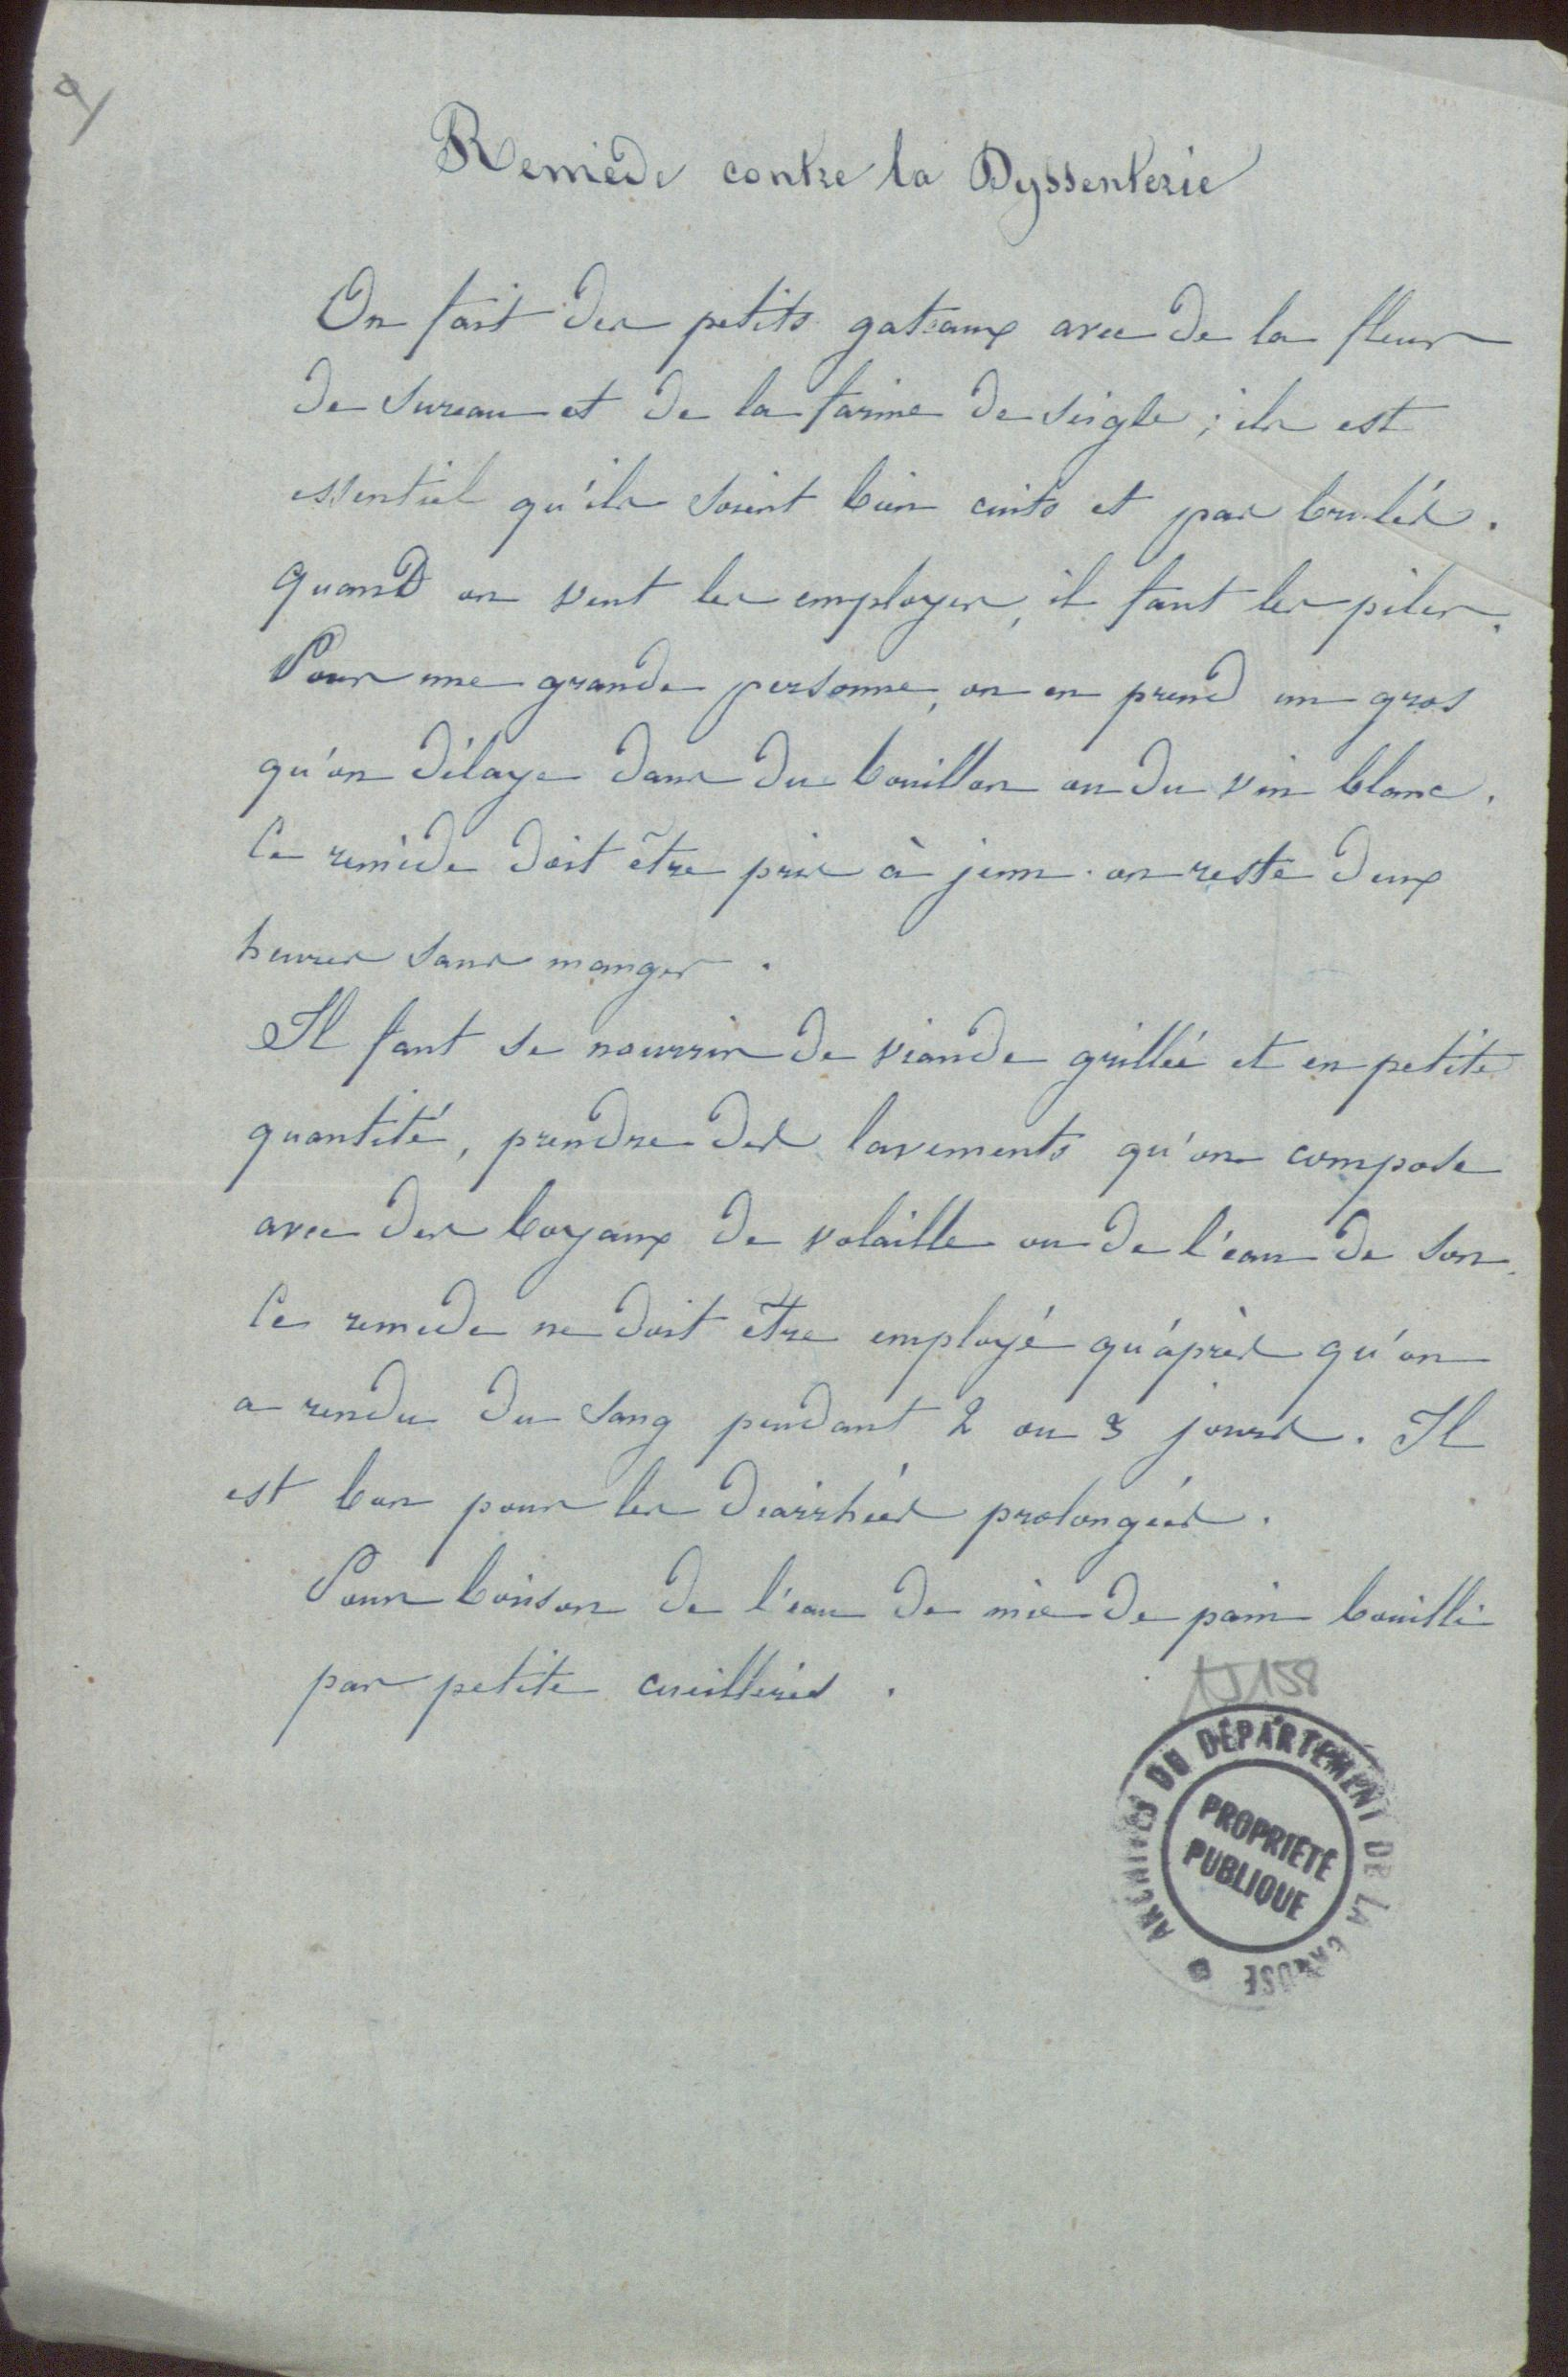 a/
Remède contre la Dyssenterie
On fait des petits gateaux avec de la fleur
de sureau et de la farine de seigle ; ils est
essentiel qu'ils soient bien cuits et pas brulés.
Quand on veut les employer, il faut les piler.
Pour une grande personne, on en prend un gros
qu'on délaye dans du bouillon ou du vin blanc.
Ce remède doit être pris à jeun. on reste deux
heures sans manger.
Il faut se nourrir de viande grillée et en petite
quantité, prendre des lavements qu'on compose
avec des boyaux de volaille ou de l'eau de son.
Ce remede ne doit être employé qu'après qu'on
a rendu du sang pendant 2 ou 3 jours. Il
est bon pour les diarrhées prolongées.
Pour boisson de l'eau de mie de pain bouilli
par petite cueillerées.
1J158
ARCHIVES DU DÉPARTEMENT DE LA CREUSE
PROPRIÉTÉ
PUBLIQUE